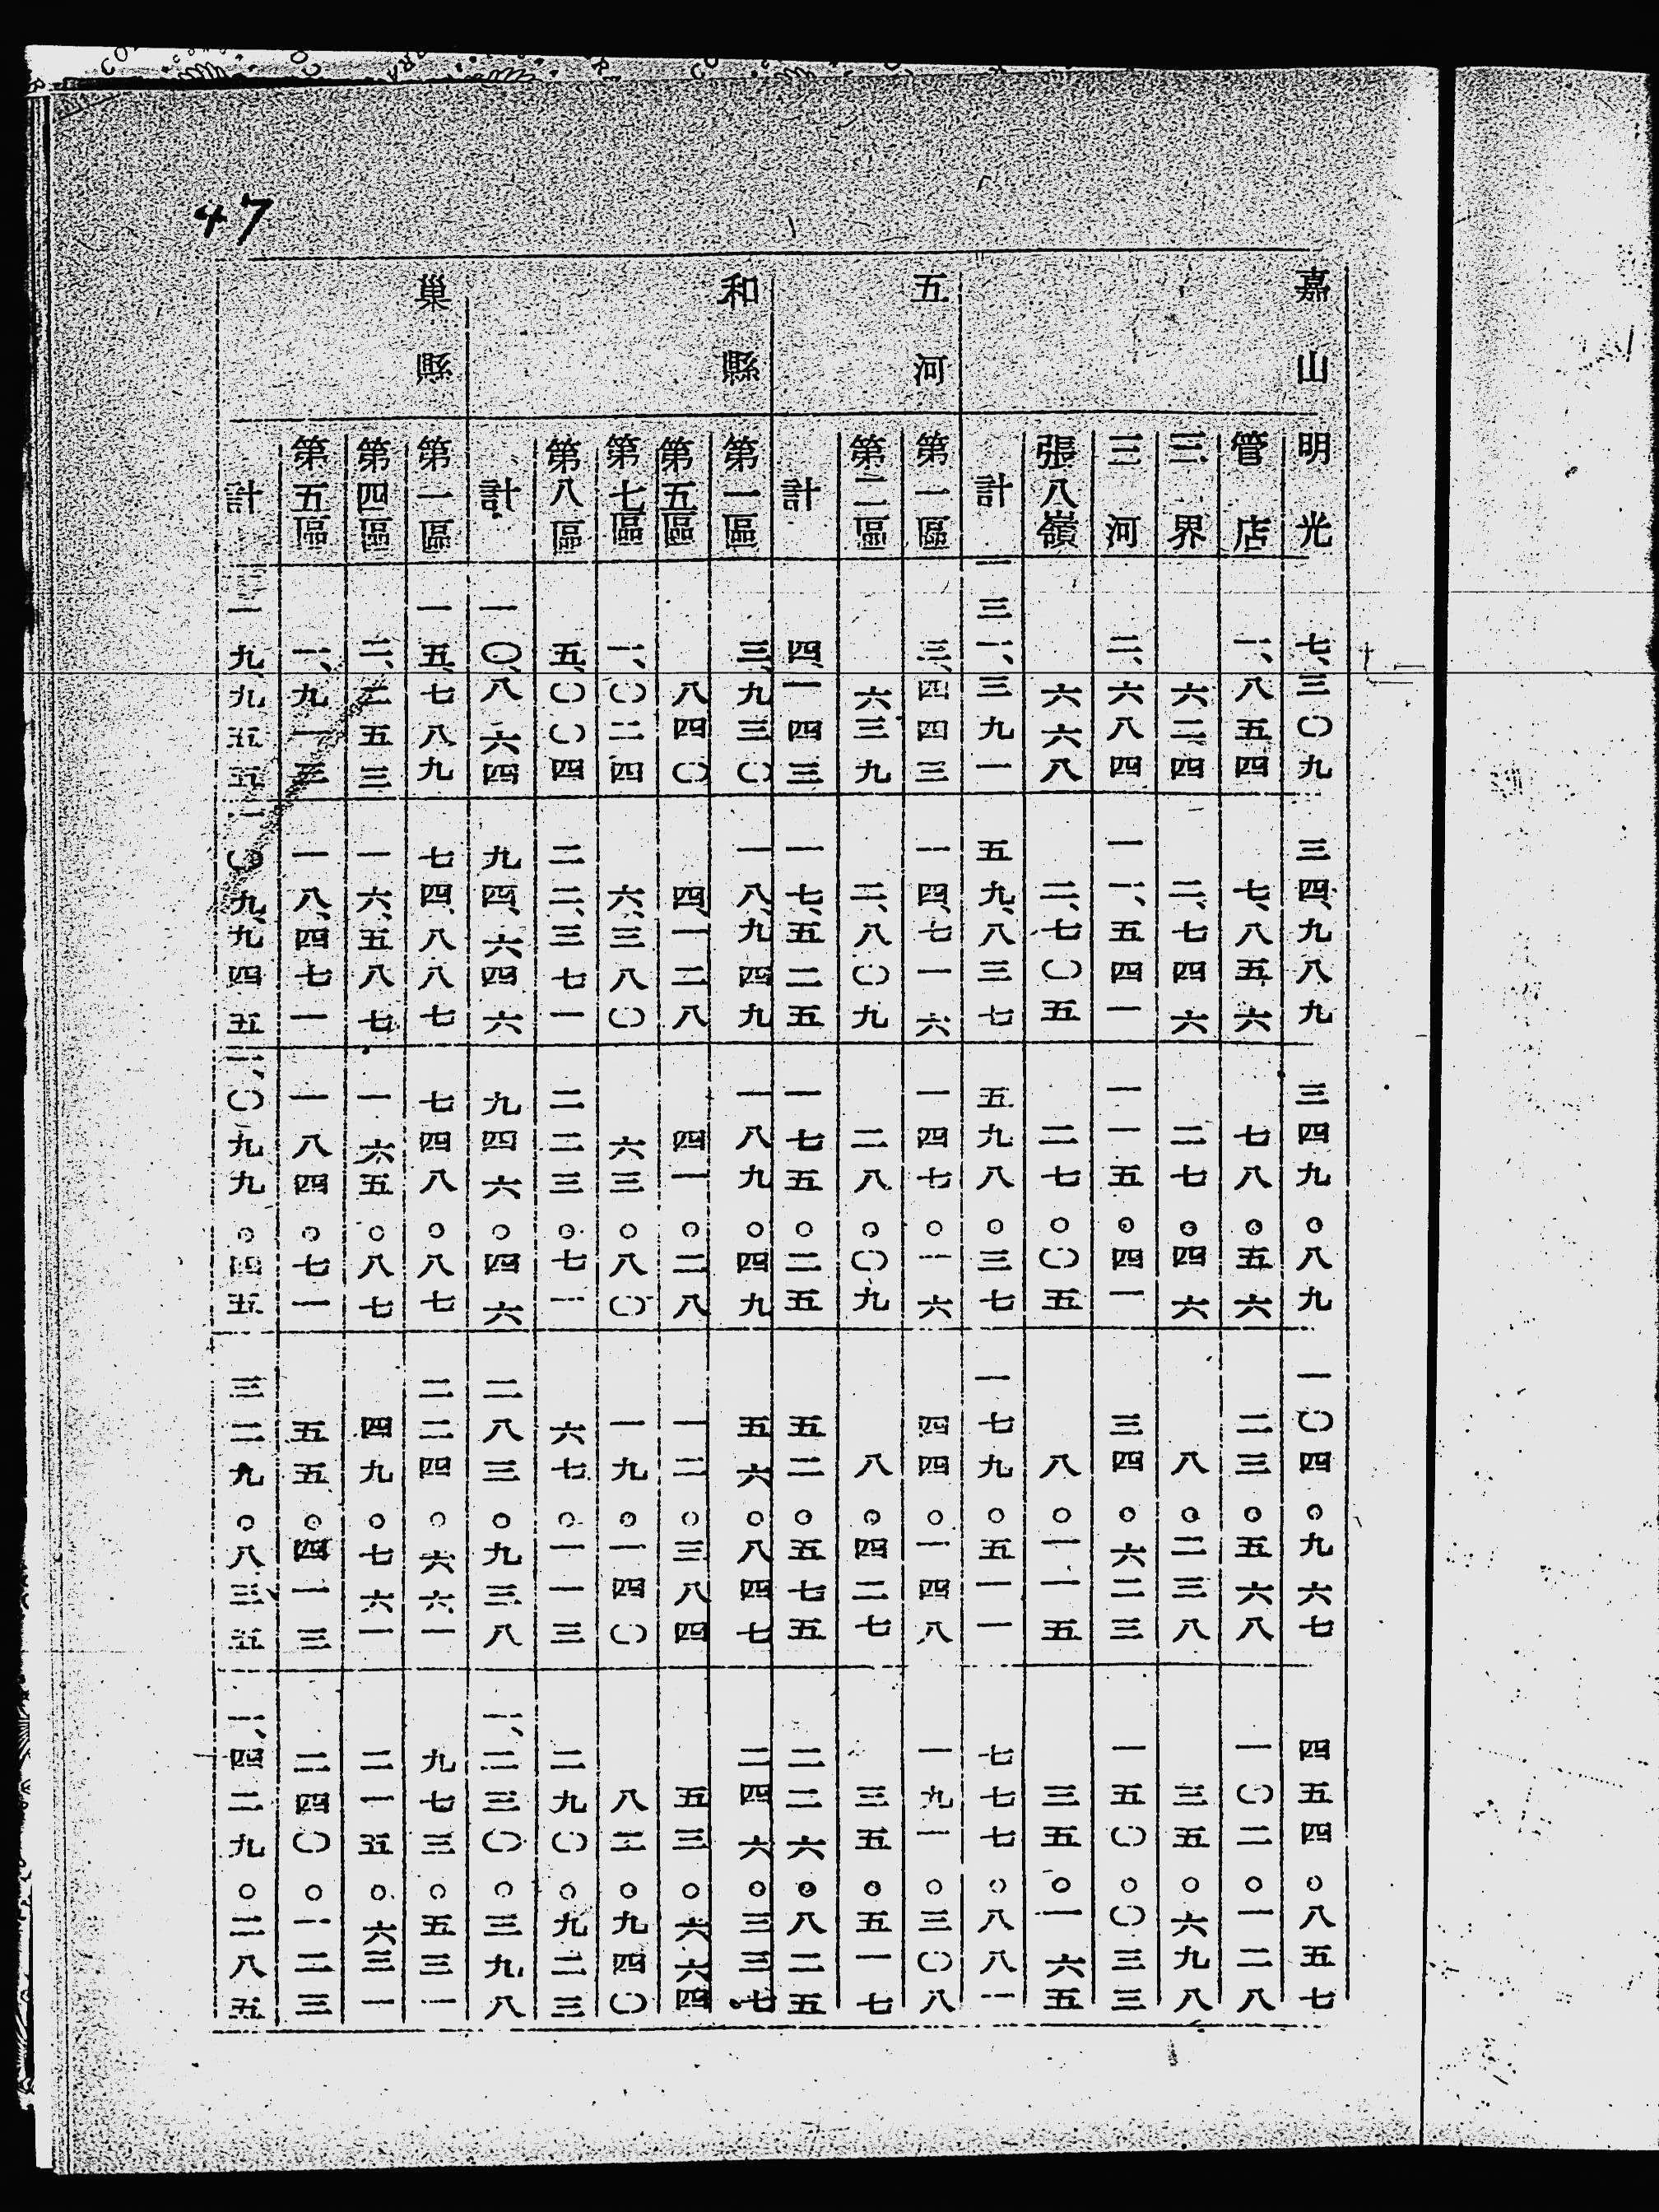 嘉山 明光 七、三〇九 三四、九八九 三四九。八九 一〇四。九六七 四五四。八五七
管店 一、八五四 七、八五六 七八。五六 二三。五六八 一〇二。一二八
三界 六二四 二、七四六 二七。四六 八。二三八 三五。六九八
三河 二、六八四 一一、五四一 一一五。四一 三四。六二三 一五〇。〇三三
張八嶺 六六八 二、七〇五 二七。〇五 八。一一五 三五。一六五
計 一三一、三九一 五九、八三七 五九八。三七 一七九。五一一 七七七。八八一
五河 第一區 三、四四三 一四、七一六 一四七。一六 四四。一四八 一九一。三〇八
第二區 六三九 二、八〇九 二八。〇九 八。四二七 三五。五一七
計 四、一四三 一七、五二五 一七五。二五 五二。五七五 二二六。八二五
和縣 第一區 三、九三〇 一八、九四九 一八九。四九 五六。八四七 二四六。三三七
第五區 八四〇 四、一二八 四一。二八 一二。三八四 五三。六六四
第七區 一、〇二四 六、三八〇 六三。八〇 一九。一四〇 八二。九四〇
第八區 五、〇〇四 二二、三七一 二二三。七一 六七。一一三 二九〇。九二三
計 一〇、八六四 九四、六四六 九四六。四六 二八三。九三八 一、二三〇。三九八
巢縣 第一區 一五、七八九 七四、八八七 七四八。八七 二二四。六六一 九七三。五三一
第四區 二、二五三 一六、五八七 一六五。八七 四九。七六一 二一五。六三一
第五區 一、九一三 一八、四七一 一八四。七一 五五。四一三 二四〇。一二三
計 一九、九五五 一〇九、九四五 一、〇九九。四五 三二九。八三五 一、四二九。二八五
47